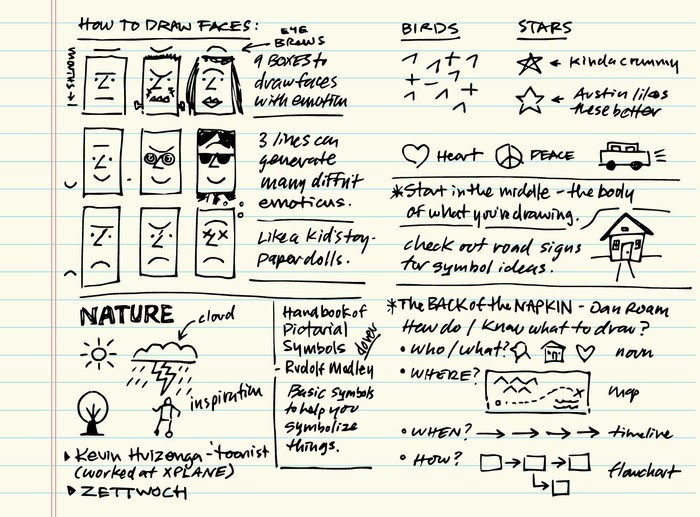 HOW TO DRAW FACES:
EYE
BROWS
MOUTHS
9 BOXES to
draw faces
with emotion
3 lines can
generate
many diffrit
emoticus.
Like a kid's toy-
Paper dolls.
BIRDS
STARS
kinda crummy
Austin likes
these better
Heart
PEACE
*Start in the middle - the body
of what you're drawing.
check out road signs
for symbol ideas.
NATURE
cloud
inspiration
Kevin Huizenga -'toonist
(worked at XPLANE)
ZETTWOCH
Handbook of
Pictorial
Symbols
clover
- Rudolf Modley
Basic symbols
to help you
symbolize
things.
*The BACK of the NAPKIN - Dan Roam
How do I know what to draw?
• WHO/WHAT? noun
• WHERE? map
• WHEN? timeline
• HOW? flowchart